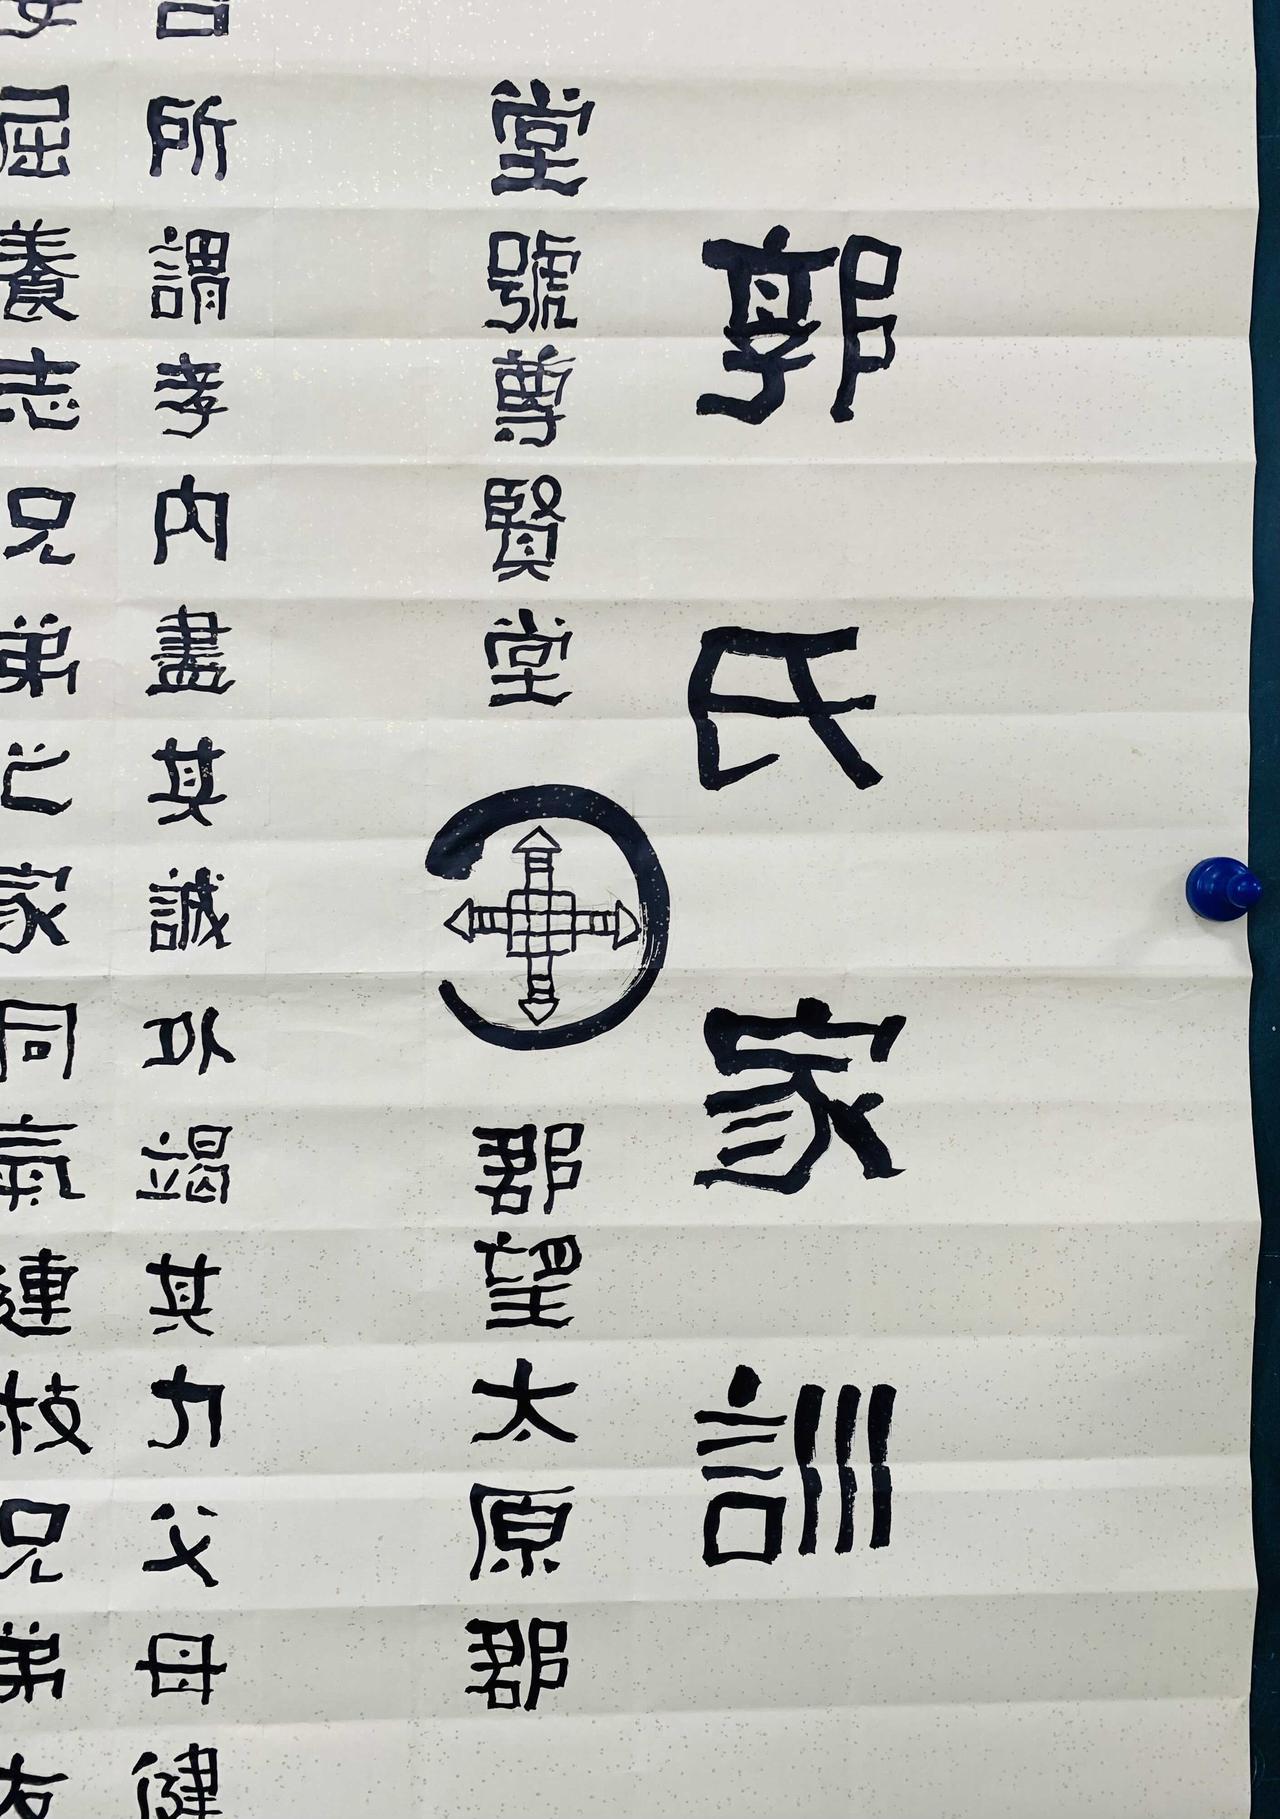 郭氏家訓
堂號尊賢堂
郡望太原郡
所謂孝內盡其誠以竭其力父母健
屈養志兄弟之家同氣連枝兄弟友